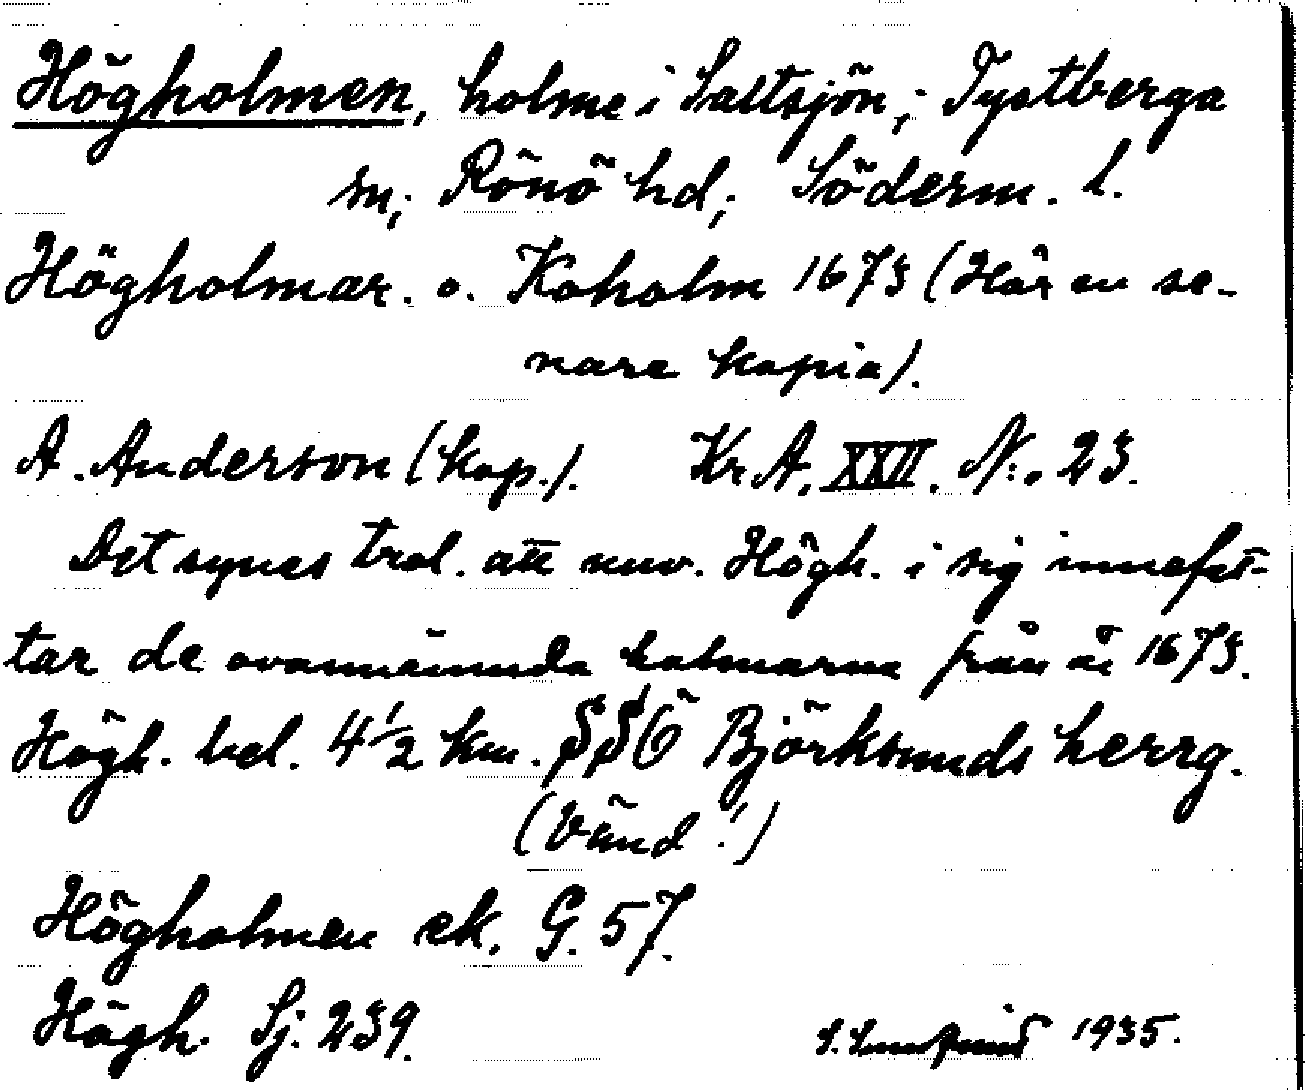 Högholmen, holme i Saltsjön; Tystberga
sn; Rönö hd; Söderm. l.
Högholmar. o. Koholm 1673 (Här en se-
nare kopia).
A. Anderson (kop.). Kr. A. XXVII. N:o 23.
Det synes trol. att nuv. Högh. i sig innefat-
tar de ovannämnda holmarna från år 1673.
Högh. bel. 4 1/2 km. SSÖ Björksunds herrg.
(Vänd!)
Högholmen ek. G. 57.
Högh. Sj. 239.
1935.